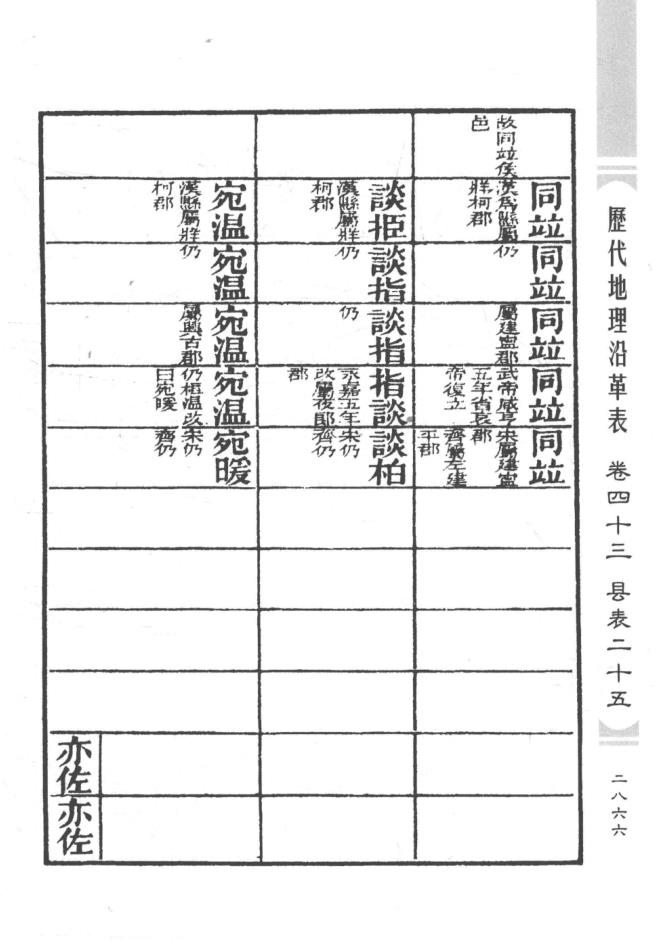 歷代地理沿革表 卷四十三 县表二十五
二八六六
故同竝侯
邑
同竝
漢爲縣屬
牂柯郡
同竝
仍
同竝
屬建寧郡
同竝
武帝咸寧
五年省哀
帝復立
同竝
宋屬建寧
郡
齊屬左建
平郡
談拒
漢縣屬牂
柯郡
談指
仍
談指
仍
指談
永嘉五年
改屬夜郎
郡
談柏
宋仍
齊仍
宛温
漢縣屬牂
柯郡
宛温
仍
宛温
屬興古郡
宛温
仍桓温改
曰宛暖
宛暖
宋仍
齊仍
亦佐
亦佐